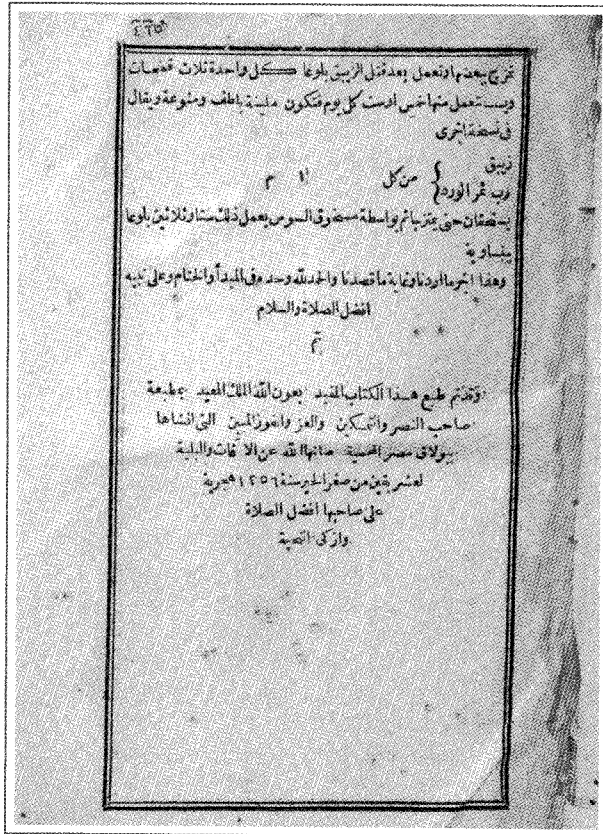 تمزج بعضها وتعمل بعد قتل الزيبق بلوعا كل واحدة ثلاث قمحات
ويستعمل منها خمس اوست كل يوم فتكون ملينة بلطف ومنوعة ويقال
فى نسخة اخرى
زيبق
رب ثمر الورد } من كل ١ م
يسحقان حتى يمتزجا ثم بواسطة مسحوق السوس يعمل ذلك ستا وثلاثين بلوعا
متساوية
وهذا آخر ما اردنا وغاية ما قصدنا والحمد لله وحده فى المبدأ والختام وعلى نبيه
افضل الصلاة والسلام
تم
وقد تم طبع هذا الكتاب المفيد بعون الله الملك المعيد بمطبعة
صاحب النصر والتمكين والعز والفوز المبين التى انشاها
ببولاق مصر المحمية صانها الله عن الآفات والبلية
لعشر بقين من صفر الخير سنة ١٢٥٦ هجرية
على صاحبها افضل الصلاة
وازكى التحية